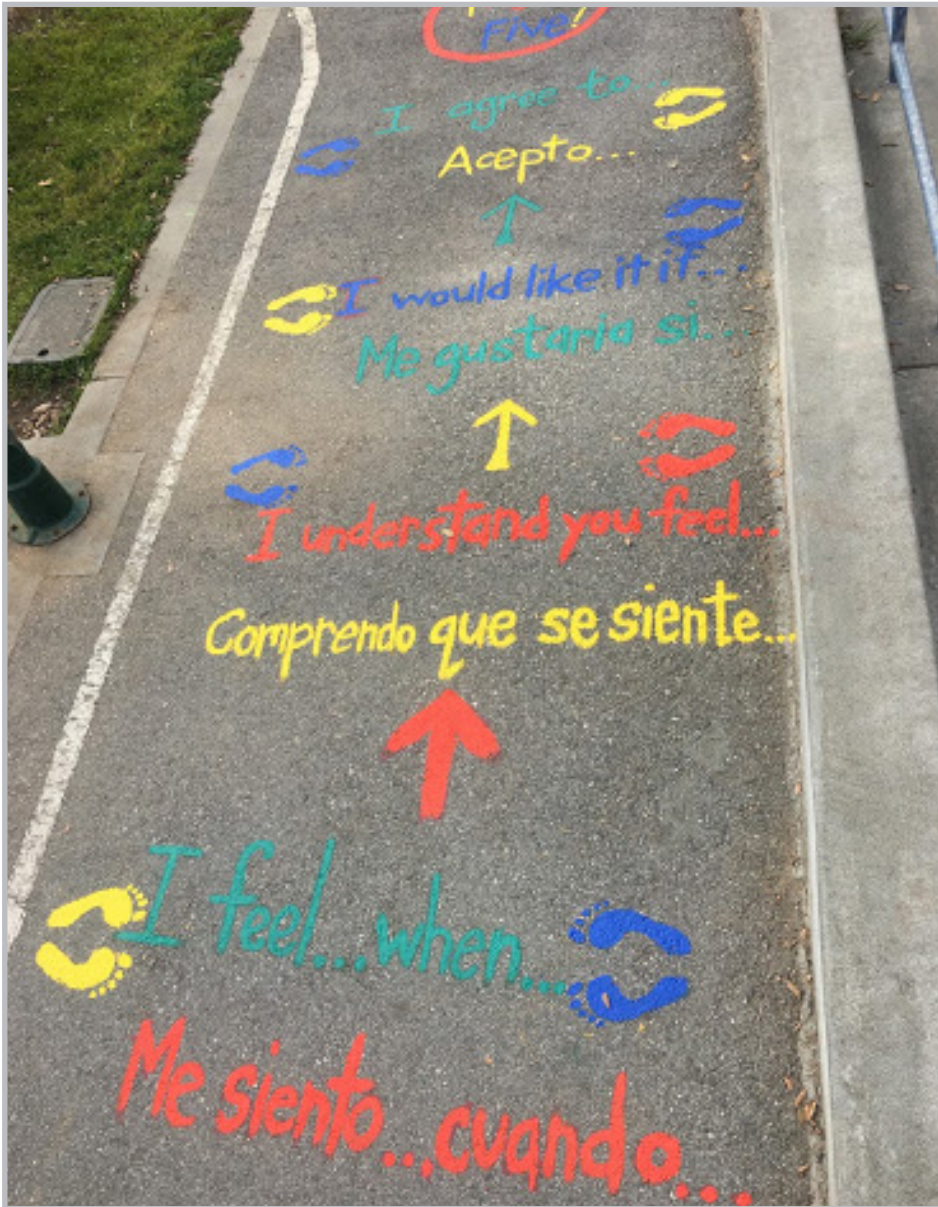 Five!
I agree to...
Acepto...
I would like it if...
Me gustaria si...
I understand you feel...
Comprendo que se siente...
I feel...when...
Me siento...cuando...